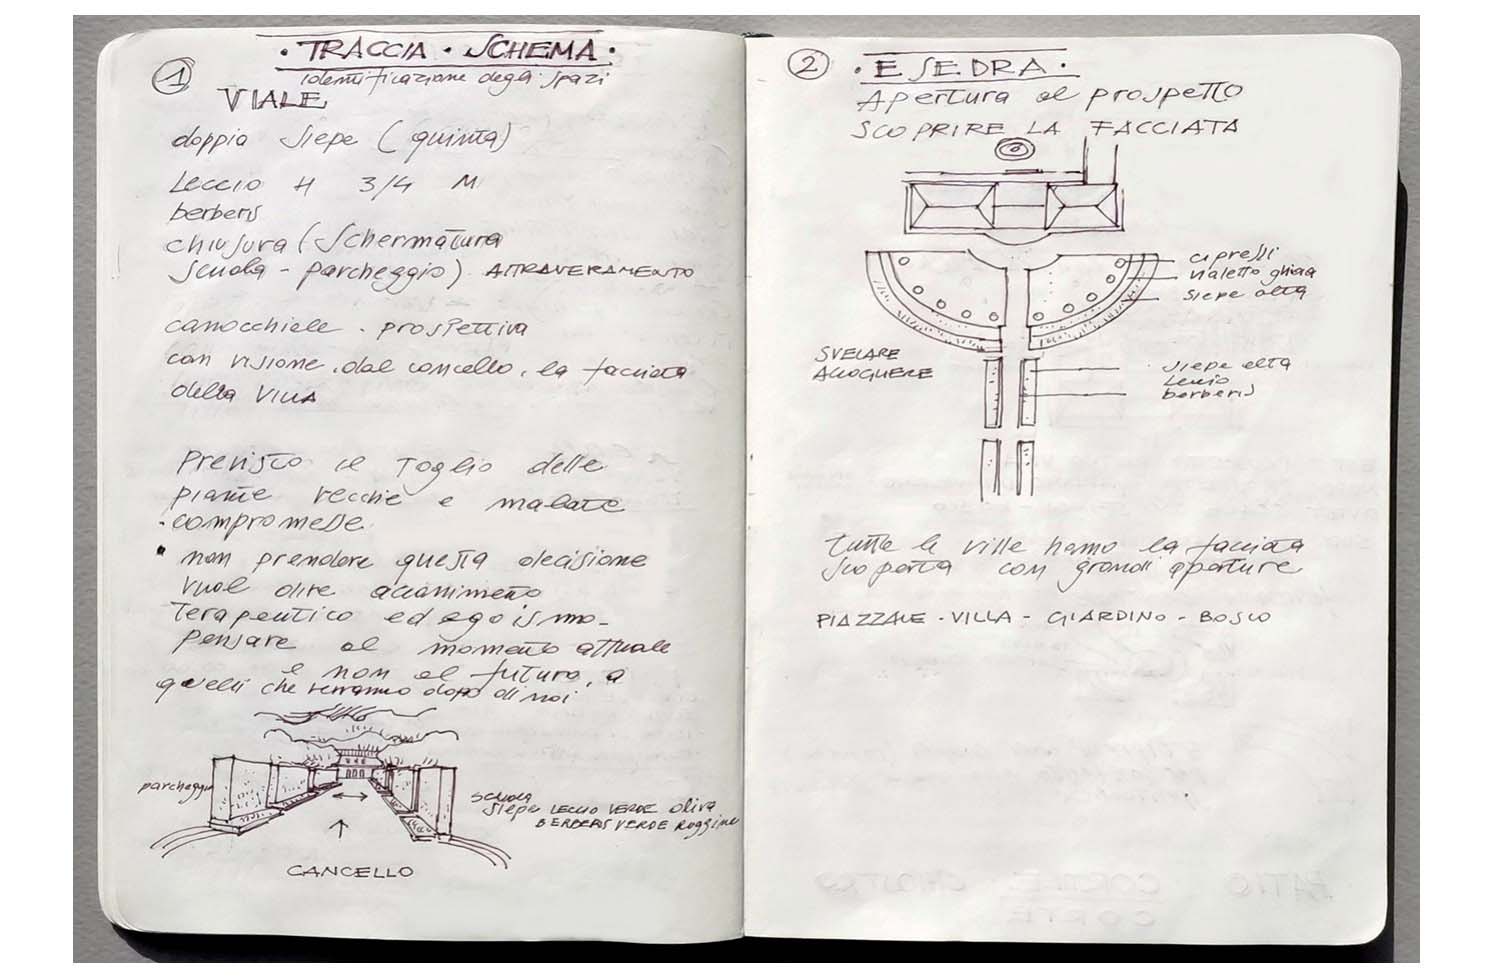 · TRACCIA · SCHEMA ·
1
identificazione degli spazi
VIALE
doppia siepe (quinta)
Leccio H 3/4 M
berberis
chiusura (schermatura
scuola - parcheggio) ATTRAVERAMENTO
canocchiale · prospettiva
con visione, dal cancello, la facciata
della VILLA
Previsto il Toglio delle
piante vecchie e malate
· compromesse
· non prendere questa decisione
vuol dire accanimento
Terapeutico ed egoismo -
pensare al momento attuale
e non al futuro, a
quelli che verranno dopo di noi
parcheggio
scuola
siepe LECCIO VERDE oliva
BERBERIS VERDE Ruggine
CANCELLO
2
· ESEDRA ·
Apertura al prospetto
SCOPRIRE LA FACCIATA
cipressi
vialetto ghiaia
siepe alta
SVELARE
ACCOGLIERE
siepe alta
Leccio
berberis
Tutte le ville hanno la facciata
scoperta con grandi aperture
PIAZZALE - VILLA - GIARDINO - BOSCO